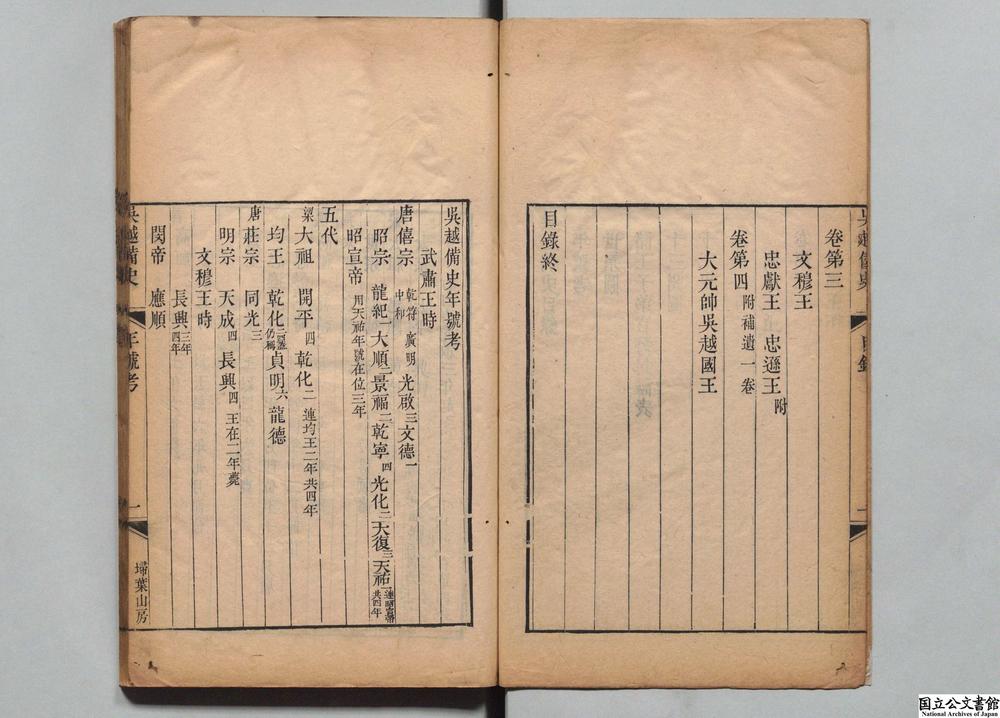 吳越備史 目錄 一
卷第三
文穆王
忠獻王 忠遜王附
卷第四 附補遺一卷
大元帥吳越國王
目錄終
吳越備史年號考
武肅王時
唐僖宗 乾符 中和 廣明 光啟三 文德一
昭宗 龍紀一 大順二 景福二 乾寧四 光化三 天復三 天祐一 連昭宣帝共四年
昭宣帝 用天祐年號在位三年
五代
梁太祖 開平四 乾化二 連均王二年共四年
均王 乾化二 仍稱三年 貞明六 龍德
唐莊宗 同光三
明宗 天成四 長興四 王在二年薨
文穆王時
長興三年 四年
閔帝 應順
吳越備史 年號考 一 埽葉山房
国立公文書館
National Archives of Japan